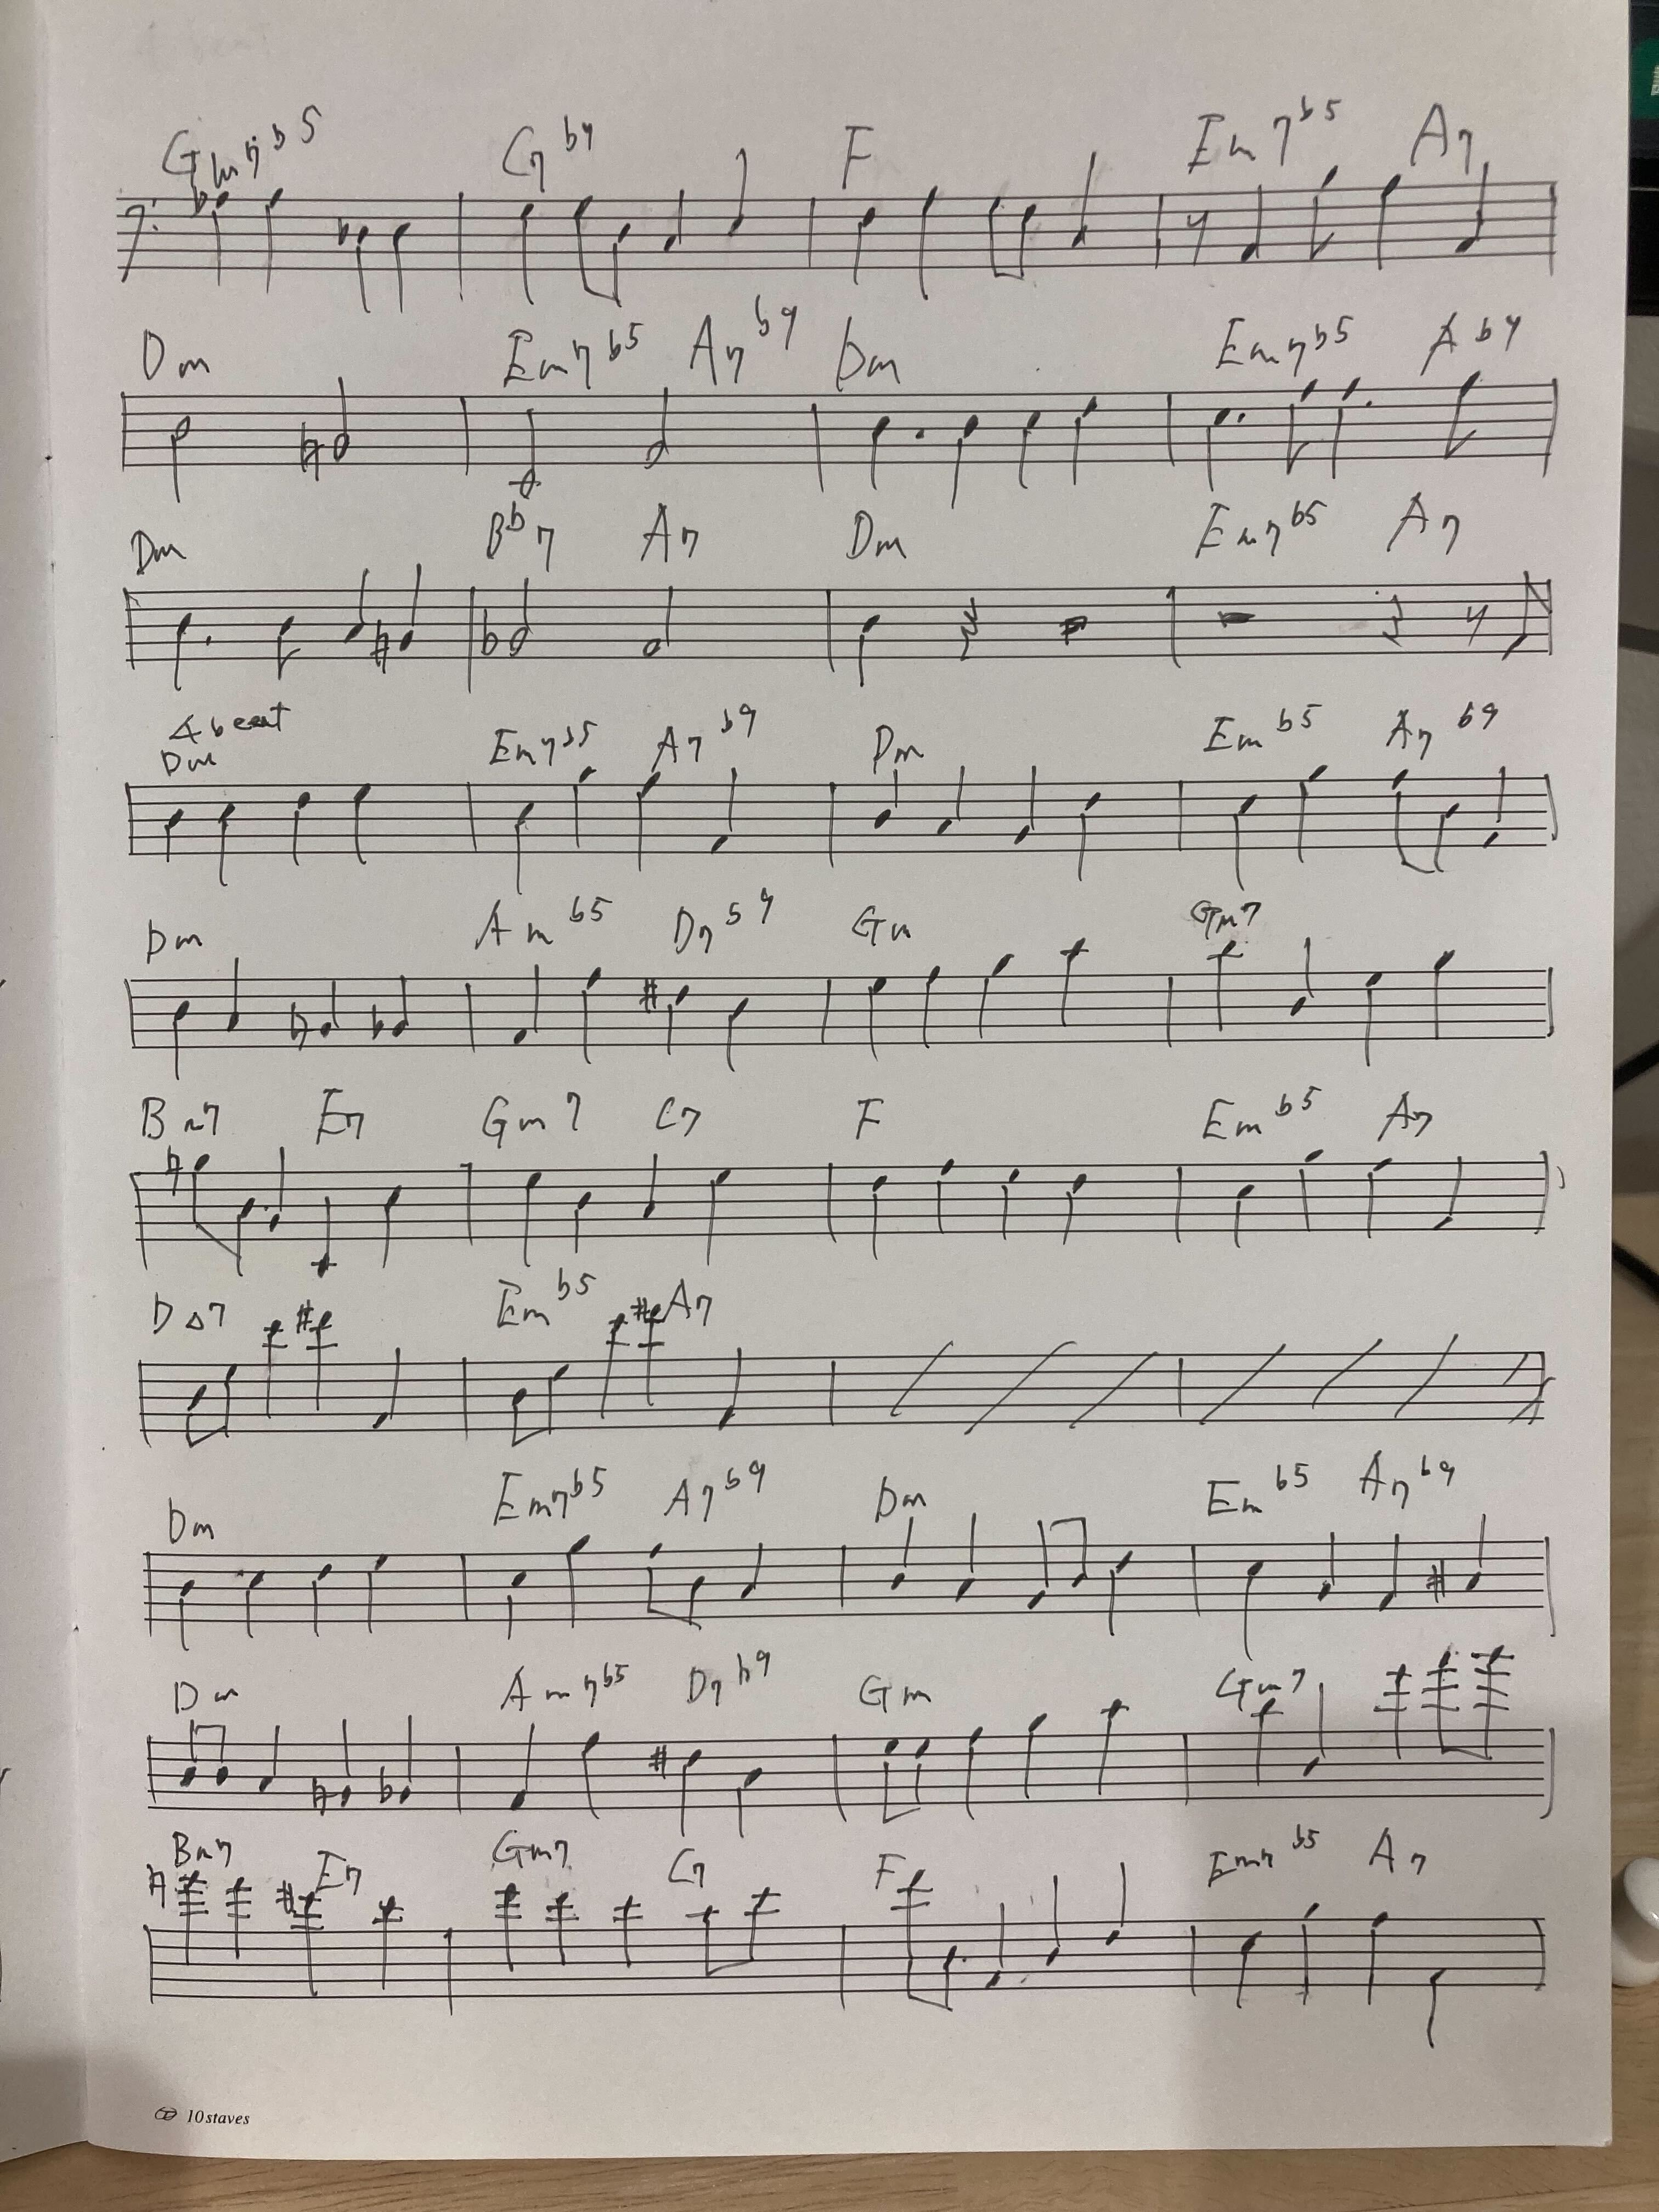 Gm7b5 C7b9 F Em7b5 A7
Dm Em7b5 A7b9 Dm Em7b5 Ab9
Dm Bb7 A7 Dm Em7b5 A7
4beat
Dm Em7b5 A7b9 Dm Emb5 A7b9
Dm Amb5 D7b9 Gm Gm7
Bm7 E7 Gm7 C7 F Emb5 A7
D△7 Emb5 A7
Dm Em7b5 A7b9 Dm Emb5 A7b9
Dm Am7b5 D7b9 Gm Gm7
Bm7 E7 Gm7 C7 F Em7b5 A7
10staves